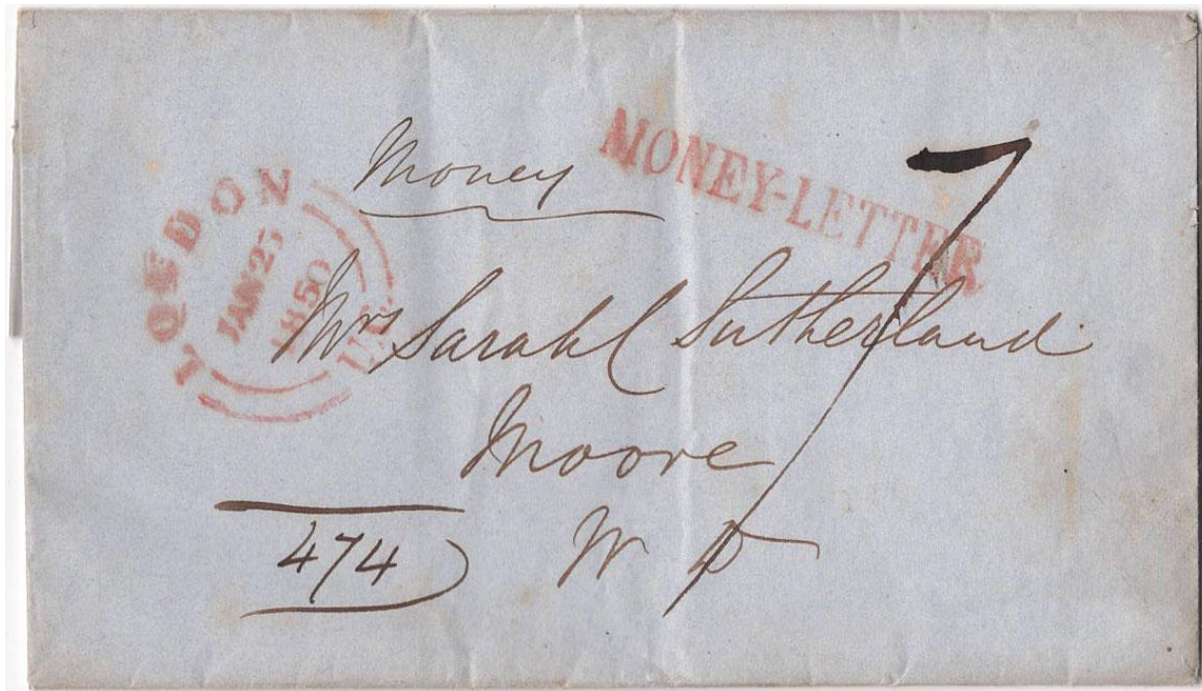 Money
MONEY-LETTER
7
LONDON
JAN 25
1850
U.C.
Mrs Sarah C Sutherland
Moore
W D
474